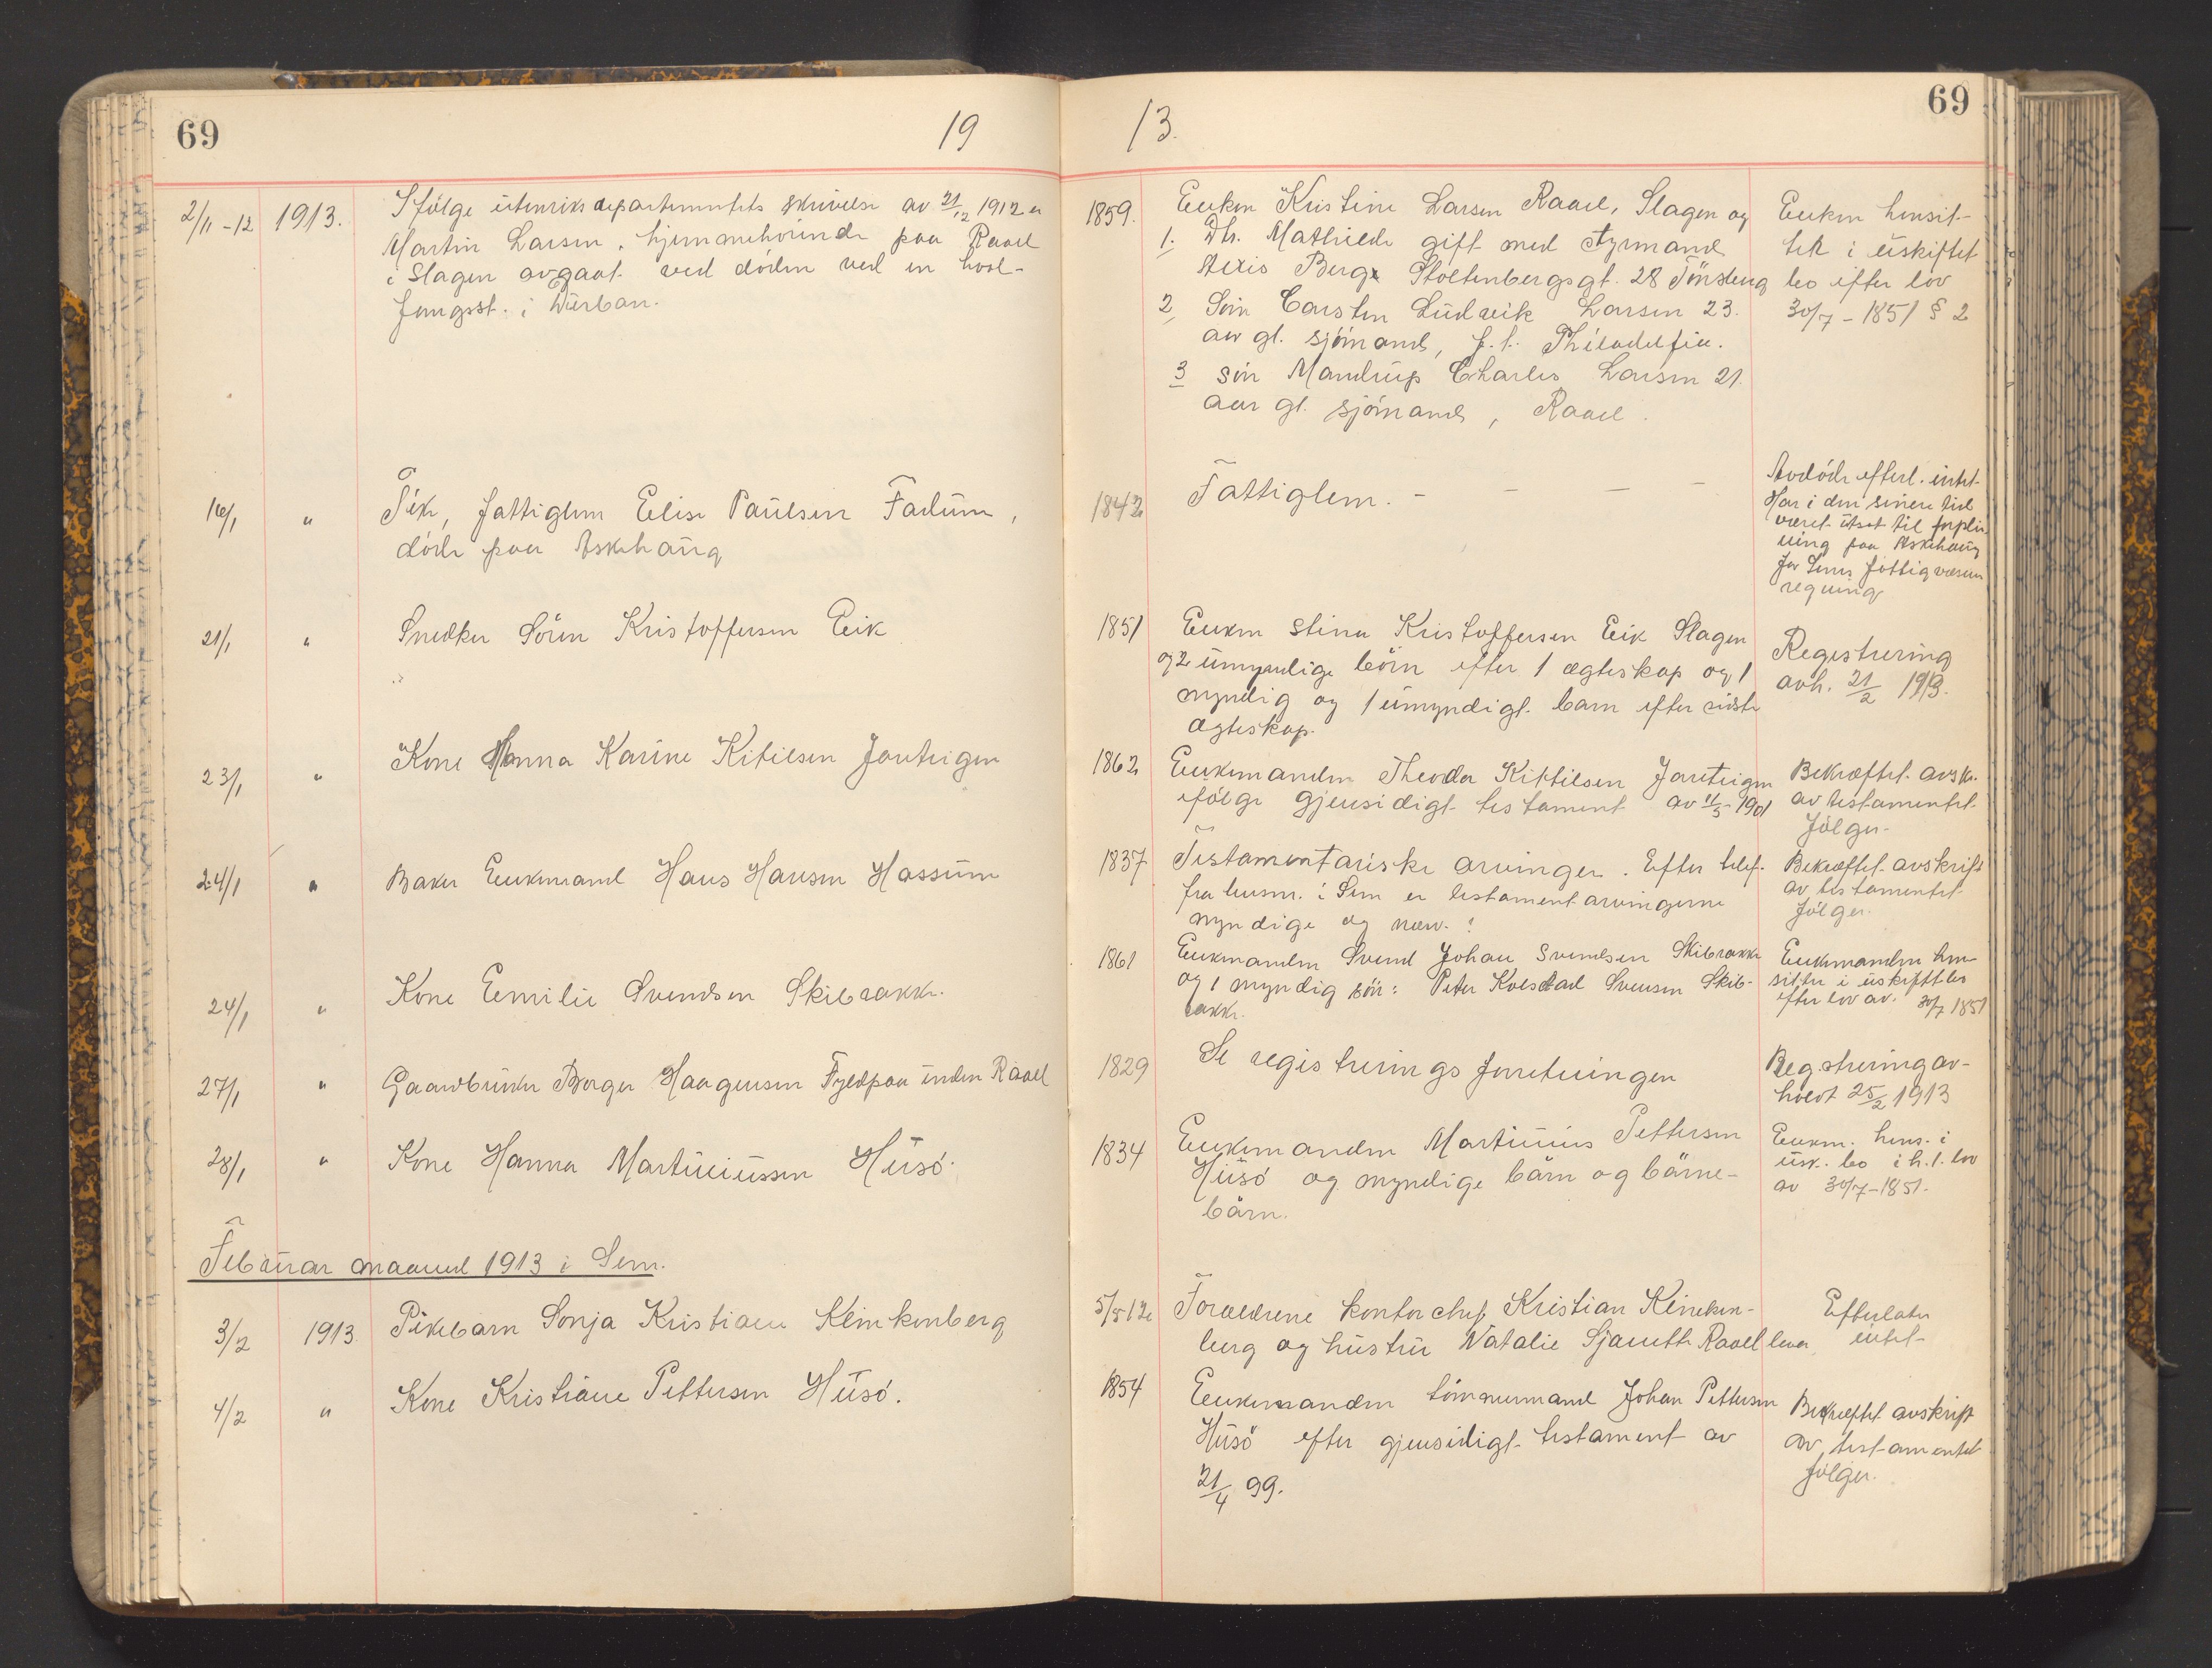 69
19
13.
69
2/11-12 1913. Ifølge utenriksdepartementets skrivelse av 21/12 1912 er
Martin Larsen, hjemmehørende paa Raael
i Slagen avgaat ved døden ved en hval-
fangst i Durban.
1859. Enken Kristine Larsen Raael, Slagen og
1. Dtr. Mathilde gift med styrmand
Alexis Berg, Stoltenbergsgt. 28 Tönsberg
2 Sön Carsten Ludvik Larsen 23
aar gl. sjömand, f.t. Philadelfia.
3 sön Mandrup Charles Larsen 21
aar gl. sjömand, Raael.
Enken hensit-
ter i uskiftet
bo efter lov
30/7-1851 § 2
16/1 " Pike, fattiglem Elise Paulsen Farlum,
döde paa Askehaug
1842 Fattiglem. - - - -
Avdöde efterl. intet.
Har i den senere tid
været utsat til forplei-
ning paa Askehaug
for Sems fattigvæsens
regning
21/1 " Snedker Sören Kristoffersen Eik
1851 Enken Stina Kristoffersen Eik Slagen
og 2 umyndige börn efter 1 ægteskap og 1
myndig og 1 umyndigt barn efter sidste
ægteskap.
Registrering
avh. 21/2 1913.
23/1 " Kone Hanna Karine Kitilsen Jareteigen
1862 Enkemanden Theodor Kittilsen Jareteigen
ifölge gjensidigt testament av 11/5-1901
Bekræftet avskr.
av testamentet
fölger.
24/1 " Baker Enkemand Hans Hansen Hassum
1837 Testamentariske arvinger. Efter telef.
fra lensm. i Sem er testamentarvingerne
myndige og nærv.?
Bekræftet avskrift
av testamentet
fölger.
24/1 " Kone Emilie Svendsen Skibrakk.
1861 Enkemanden Svend Johan Svendsen Skibrakk
og 1 myndig sön: Peter Kolstad Svensen Skib-
rakk.
Enkemanden hen-
sitter i uskiftet bo
efter lov av 30/7 1851
27/1 " Gaardbruker Borger Haagensen Fyldpaa under Raael
1829 Se registreringsforretningen
Reg.streringav-
holdt 25/2 1913
28/1 " Kone Hanna Martiniussen Husö.
1834 Enkemanden Martinius Pettersen
Husö og myndige börn og börne-
börn.
Enkem. hens. i
usk. bo i h.t. lov
av 30/7-1851.
Februar maaned 1913 i Sem.
3/2 1913 Pikebarn Sonja Kristiane Klinkenberg
5/5 12 Foreldrene kontorchef Kristian Klinken-
berg og hustru Natalie Raael lever
Efterlater
intet
4/2 " Kone Kristiane Pettersen Husö.
1854 Enkemanden tömmermand Johan Pettersen
Husö efter gjensidigt testament av
21/4 99.
Bekræftet avskrift
av testamentet
fölger.